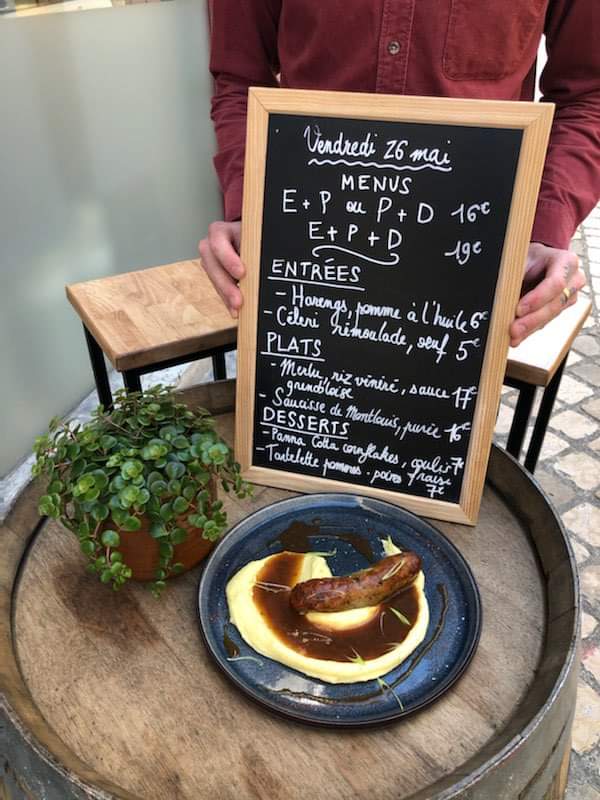 Vendredi 26 mai
MENUS
E + P ou P + D 16€
E + P + D 19€
ENTRÉES
- Harengs, pomme à l'huile 6€
- Céleri rémoulade, oeuf 5€
PLATS
- Merlu, riz vénéré, sauce 17€
grenobloise
- Saucisse de Montlouis, purée 16€
DESSERTS
- Panna Cotta cornflakes, coulis 7€
fraise
- Tartelette pommes - poires 7€